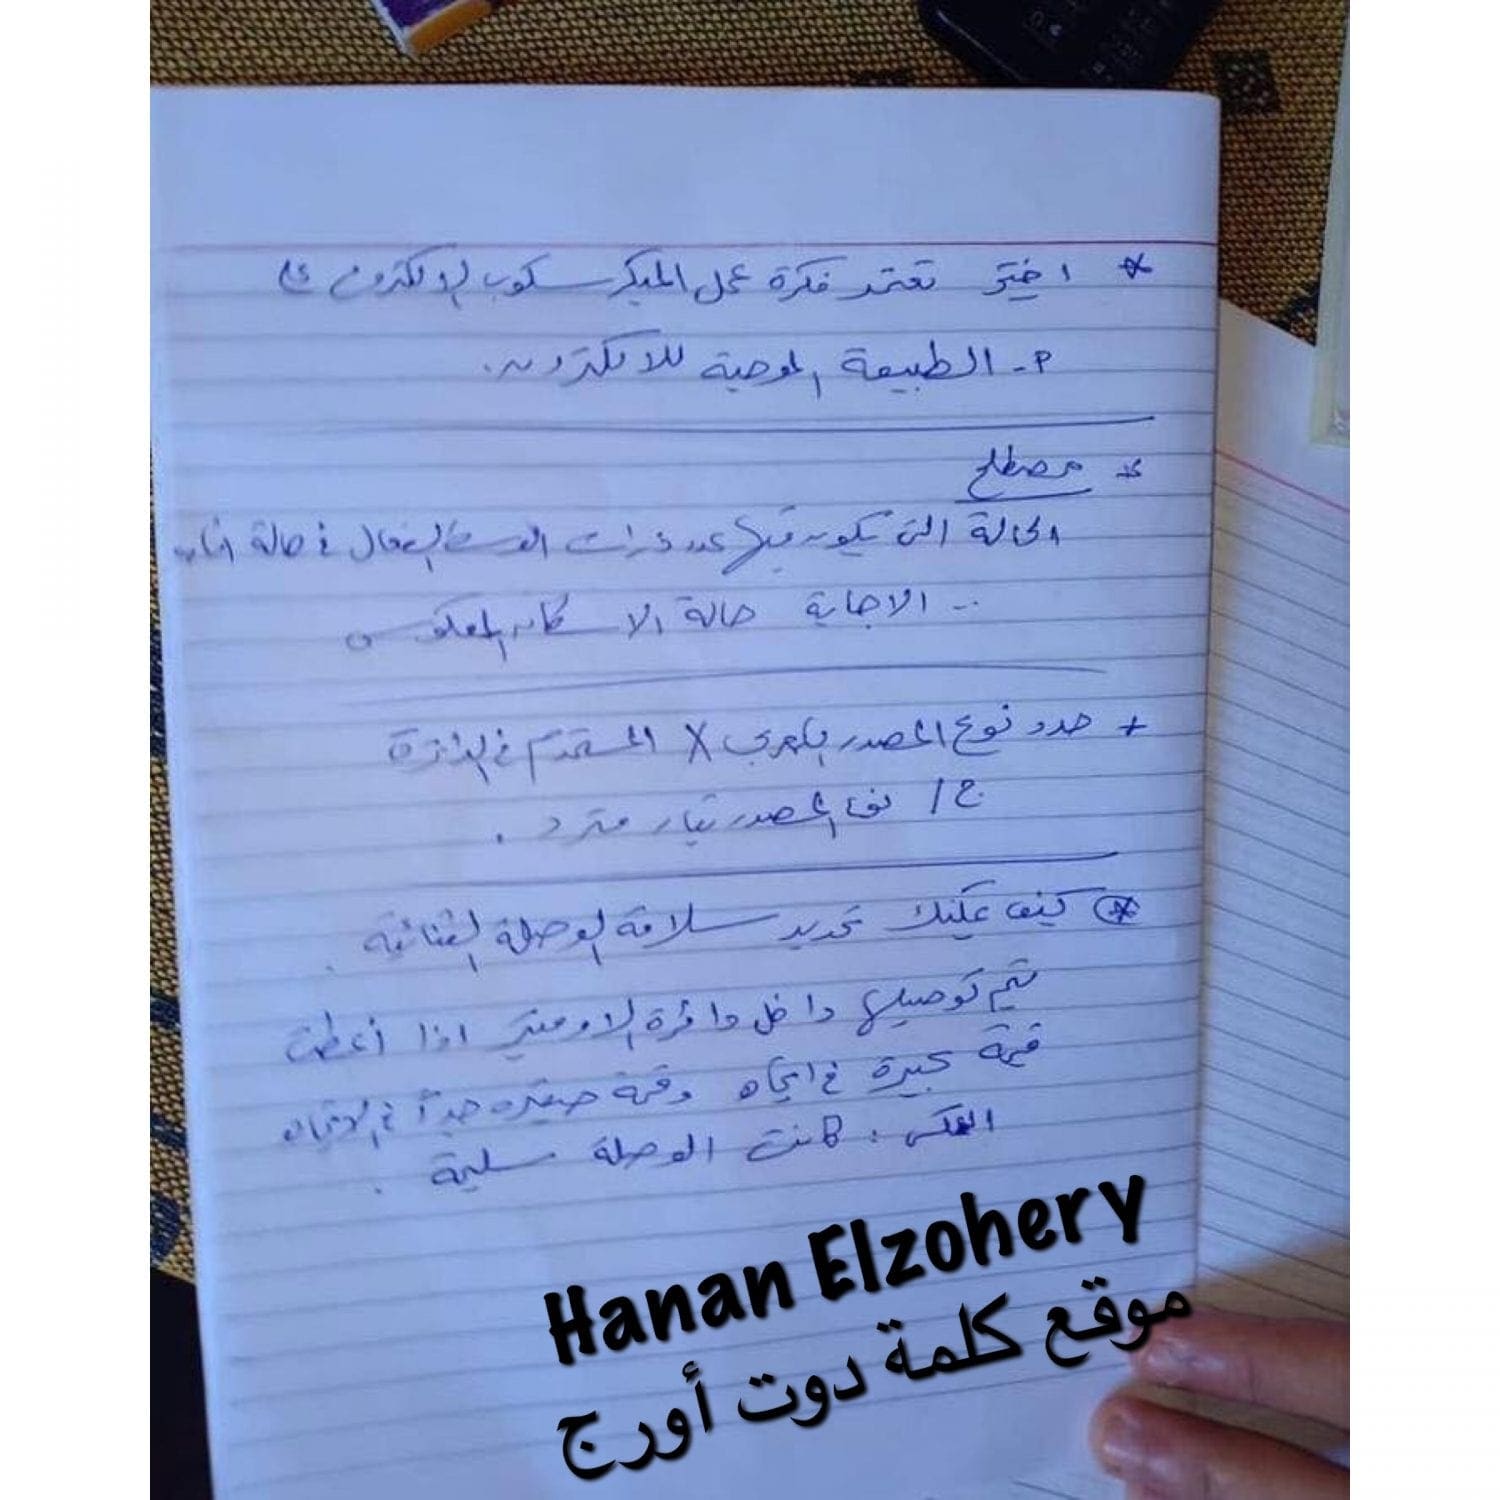 * اختر تعتمد فكرة عمل الميكرسكوب الالكترونى على
P - الطبيعة الموجية للالكترون.
* مصطلح
الحالة التى يكون فيها عدد ذرات الوسط الفعال فى حالة اثارة
-. الاجابة حالة الاسكان المعكوس
+ حدد نوع المصدر الكهربى X المستخدم فى الدائرة
ج / نوع المصدر تيار متردد .
* كيف يمكنك تحديد سلامة الوصلة الثنائية .
يتم توصيلها داخل دائرة الاوميتر اذا أعطت
قيمة كبيرة فى اتجاه وقيمة صغيره جداً فى الاتجاه
العكس . كانت الوصلة سليمة .
Hanan Elzohery
موقع كلمة دوت أورج